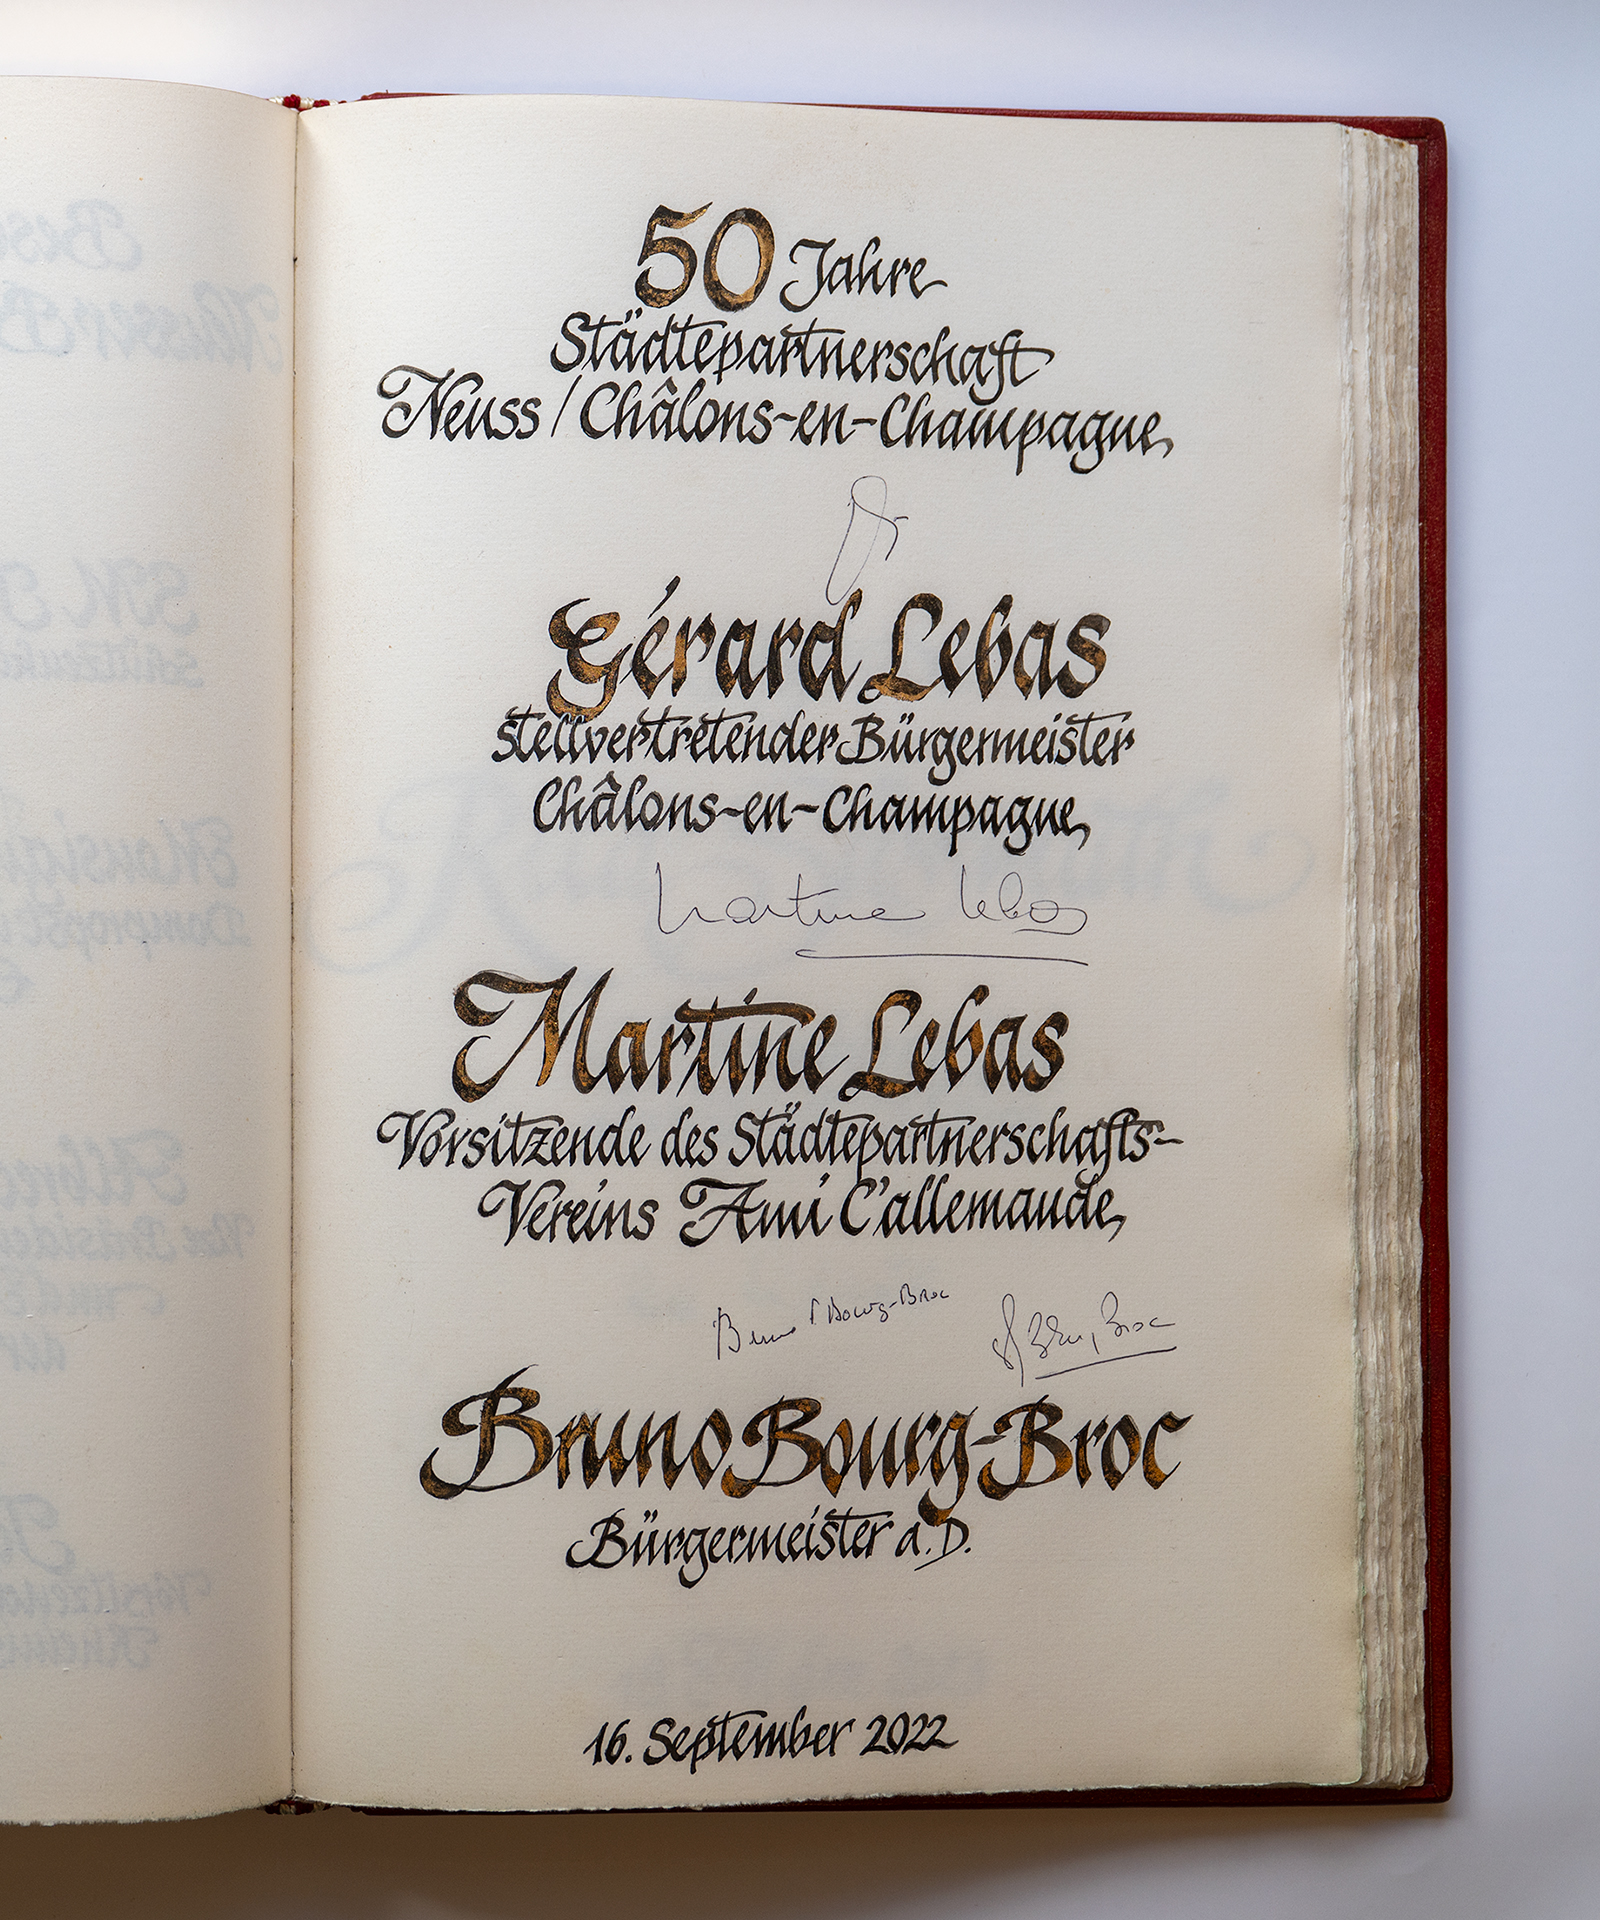 50 Jahre
Städtepartnerschaft
Neuss / Châlons-en-Champagne
Gérard Lebas
stellvertretender Bürgermeister
Châlons-en-Champagne
Martine Lebas
Martine Lebas
Vorsitzende des Städtepartnerschafts-
Vereins Ami C'allemande
Bruno Bourg-Broc
Bruno Bourg-Broc
Bürgermeister a.D.
16. September 2022